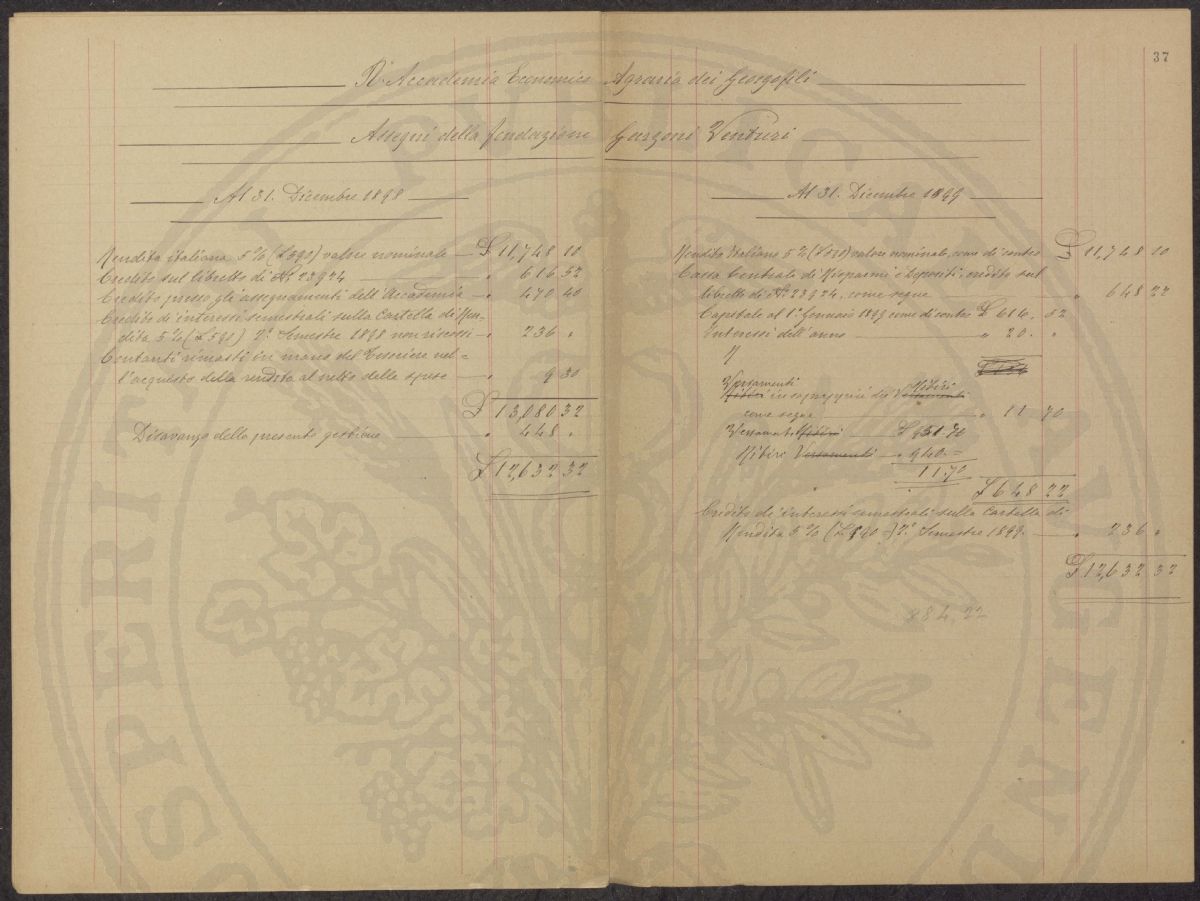 37
R. Accademia Economico Agraria dei Georgofili
Assegni della fondazione Garzoni Venturi
Al 31. Dicembre 1898
Rendita italiana 5% (£590) valore nominale £ 11,748 10
Credito sul libretto di N. 23924 " 616 52
Credito presso gli assegnamenti dell'Accademia " 470 40
Credito di interessi semestrali sulla Cartella di Ren=
dita 5% (£590) 2° Semestre 1898 non riscossi " 236 "
Contanti rimasti in mano del Tesoriere nel=
l'acquisto della rendita al netto delle spese " 9 30
£ 13,080 32
Disavanzo della presente gestione " 448 "
£ 12,632 32
Al 31. Dicembre 1899
Rendita Italiana 5% (£590) valore nominale, come di contro £ 11,748 10
Cassa Centrale di Risparmi e Depositi, credito sul
libretto di N. 23924, come segue " 648 22
Capitale al 1° Gennaio 1899 come di contro £ 616. 52
Interessi dell'anno " 20. "
Versamenti Ritiri
Ritiri in Versamenti
come segue " 11 70
Versamenti Ritiri £ 951 70
Ritiri Versamenti " 940. =
11.70
£ 648 22
Credito di interessi semestrali sulla Cartella di
Rendita 5% (£590=) 2° Semestre 1899. " 236 "
£ 12,632 32
884,22
SPERITE PVBLICAE AVGENDAE